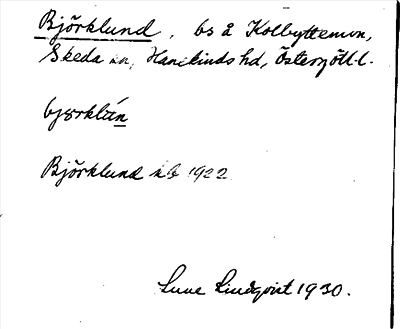 Björklund, bs å Kolbyttemon,
Skeda sn, Hanekinds hd, Östergötl.
bjørklún
Björklund jb 1922
Sune Lindqvist 1930.